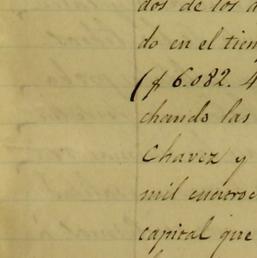 dos de los
do en el tiem
($ 6.082. 4
chando las
Chavez y
mil cuatroc
capital que